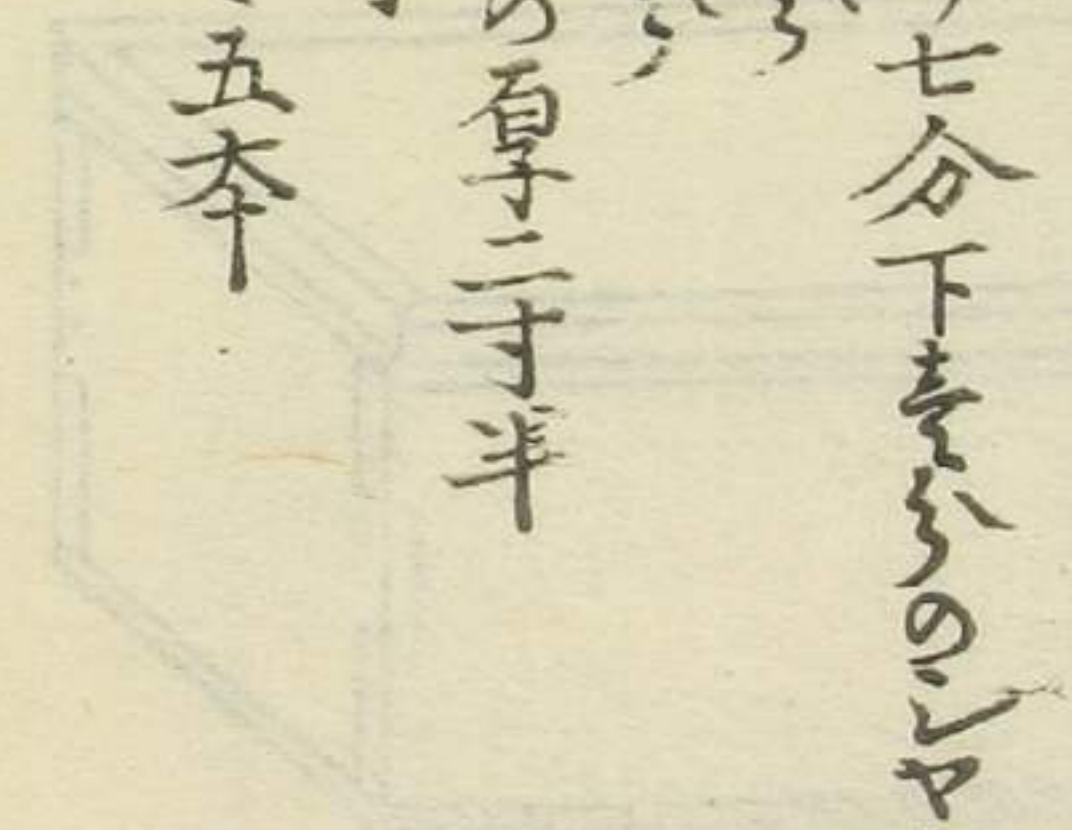 七分下壱分のシャ
分
の厚二寸半
五本